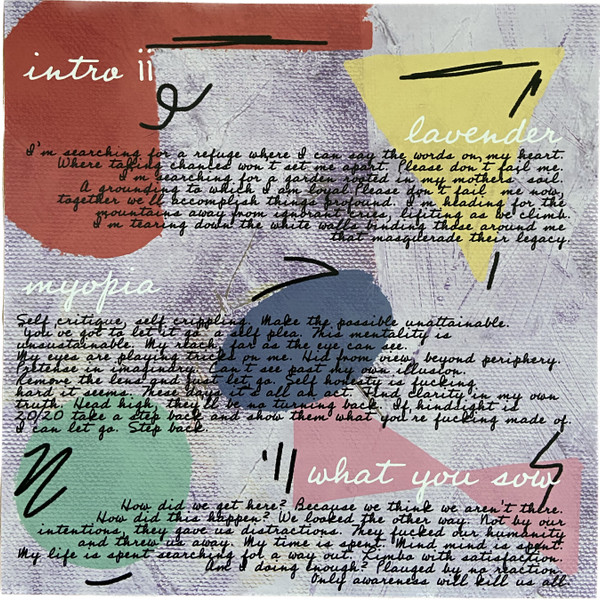 intro ii
lavender
I'm searching for a refuge where I can say the words on my heart.
Where taking chances won't set me apart. Please don't fail me.
I'm searching for a garden rooted in my mothers soil.
A grounding to which I am loyal Please don't fail me now,
together we'll accomplish things profound. I'm heading for the
mountains away from ignorant cries, lifiting as we climb.
I'm tearing down the white walls binding those around me
that masquerade their legacy.
myopia
Self critique, self crippling. Make the possible unattainable.
You've got to let it go a self plea. This mentality is
unsustainable. My reach far as the eye can see.
My eyes are playing tricks on me. Hid from view, beyond periphery.
Pretense in imagindry. Can't see past my own illusion.
Remove the lens and just let go. Self honesty is fucking
hard it seems. These days it's all an act. Find clarity in my own
truth. Head high, there'll be no turning back. If hindsight is
20/20 take a step back and show them what you're fucking made of.
I can let go. Step back
what you sow
How did we get here? Because we think we aren't there.
How did this happen? We looked the other way. Not by our
intentions, they gave us distractions. They fucked our humanity
and threw us away. My time is spent. Mind mind is spent.
My life is spent searching for a way out. Limbo with satisfaction.
Am I doing enough? Plauged by no reaction.
Only awareness will kill us all